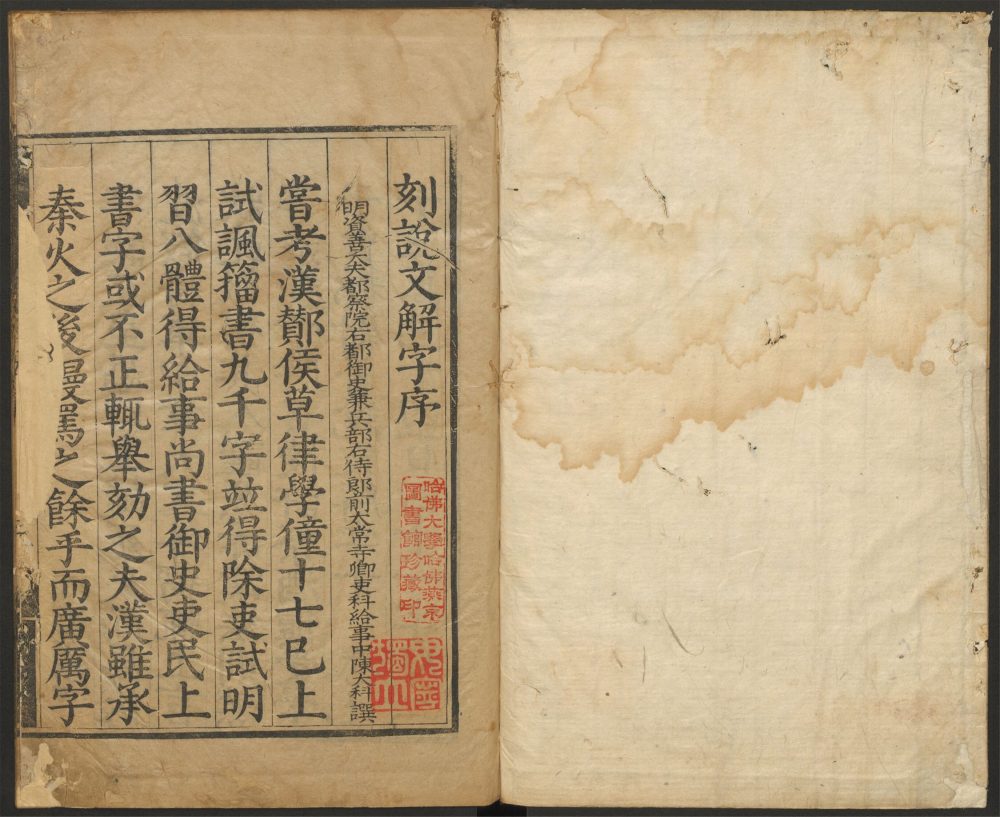 刻說文解字序
明資善大夫都察院右都御史兼兵部右侍郎前太常寺卿吏科給事中陳大科譔
嘗考漢酇侯草律學僮十七已上
試諷籀書九千字竝得除吏試明
習八體得給事尚書御史吏民上
書字或不正輒舉劾之夫漢雖承
秦火之後嫚罵之餘乎而廣厲字
哈佛大學哈佛燕京
圖書館珍藏印